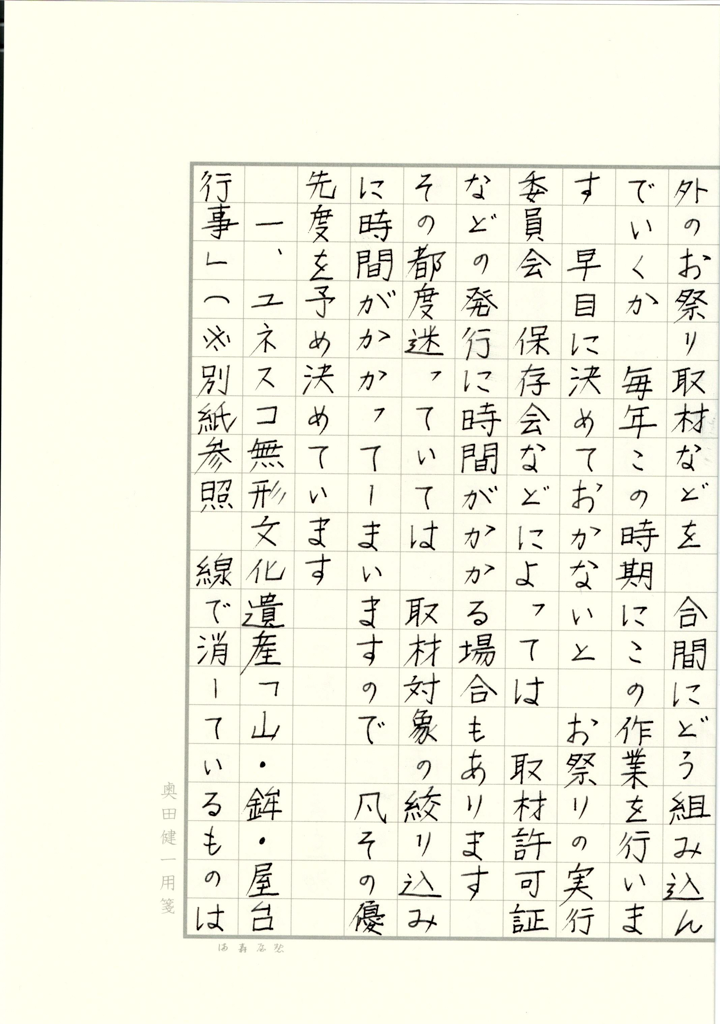 外のお祭り取材などを　合間にどう組み込ん
でいくか　毎年この時期にこの作業を行いま
す　早目に決めておかないと　お祭りの実行
委員会　保存会などによっては　取材許可証
などの発行に時間がかかる場合もあります
その都度迷っていては　取材対象の絞り込み
に時間がかかってしまいますので　凡その優
先度を予め決めています
　一、ユネスコ無形文化遺産「山・鉾・屋台
行事」（※別紙参照　線で消しているものは
奥田健一用箋